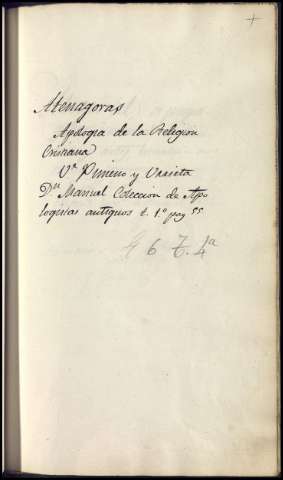 +
Atenagoras
Apologia de la Religion
Cristiana
Vª Ximeno y Urrieta
Dⁿ Manuel Coleccion de Apo
logistas antiguos t. 1º pag 55
6 T. 4ª